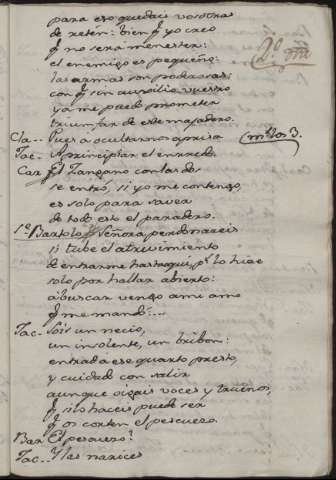 para eso quedais vosotras
de retén: bien q.e yo creo
q.e no sera menester:
el enemigo es pequeño:
las armas son poderosas:
con q.e sin ausilio vuestro
ya me puedo prometer
triunfar de este majadero.
Cla.. Pues a ocultarnos aprisa
Jac.. A principiar el enredo.
Car. El Zangano con las dos
se entró, si yo me contengo,
es solo para saver
de todo esto el paradero.
Bartolo Señora, perdonareis
si tube el atrevimiento
de entrarme hasta aqui, p.s lo hice
solo por hallar abierto:
a buscar vengo a mi amo
q.e me mandó....
Jac. Sois un necio,
un insolente, un bribon:
entrad a ese quarto presto,
y cuidad con salir
aunque oigais voces y truenos,
q.e si lo haceis puede ser
q.e os corten el pescuezo.
Bar. El pescuezo?
Jac... Y las narices